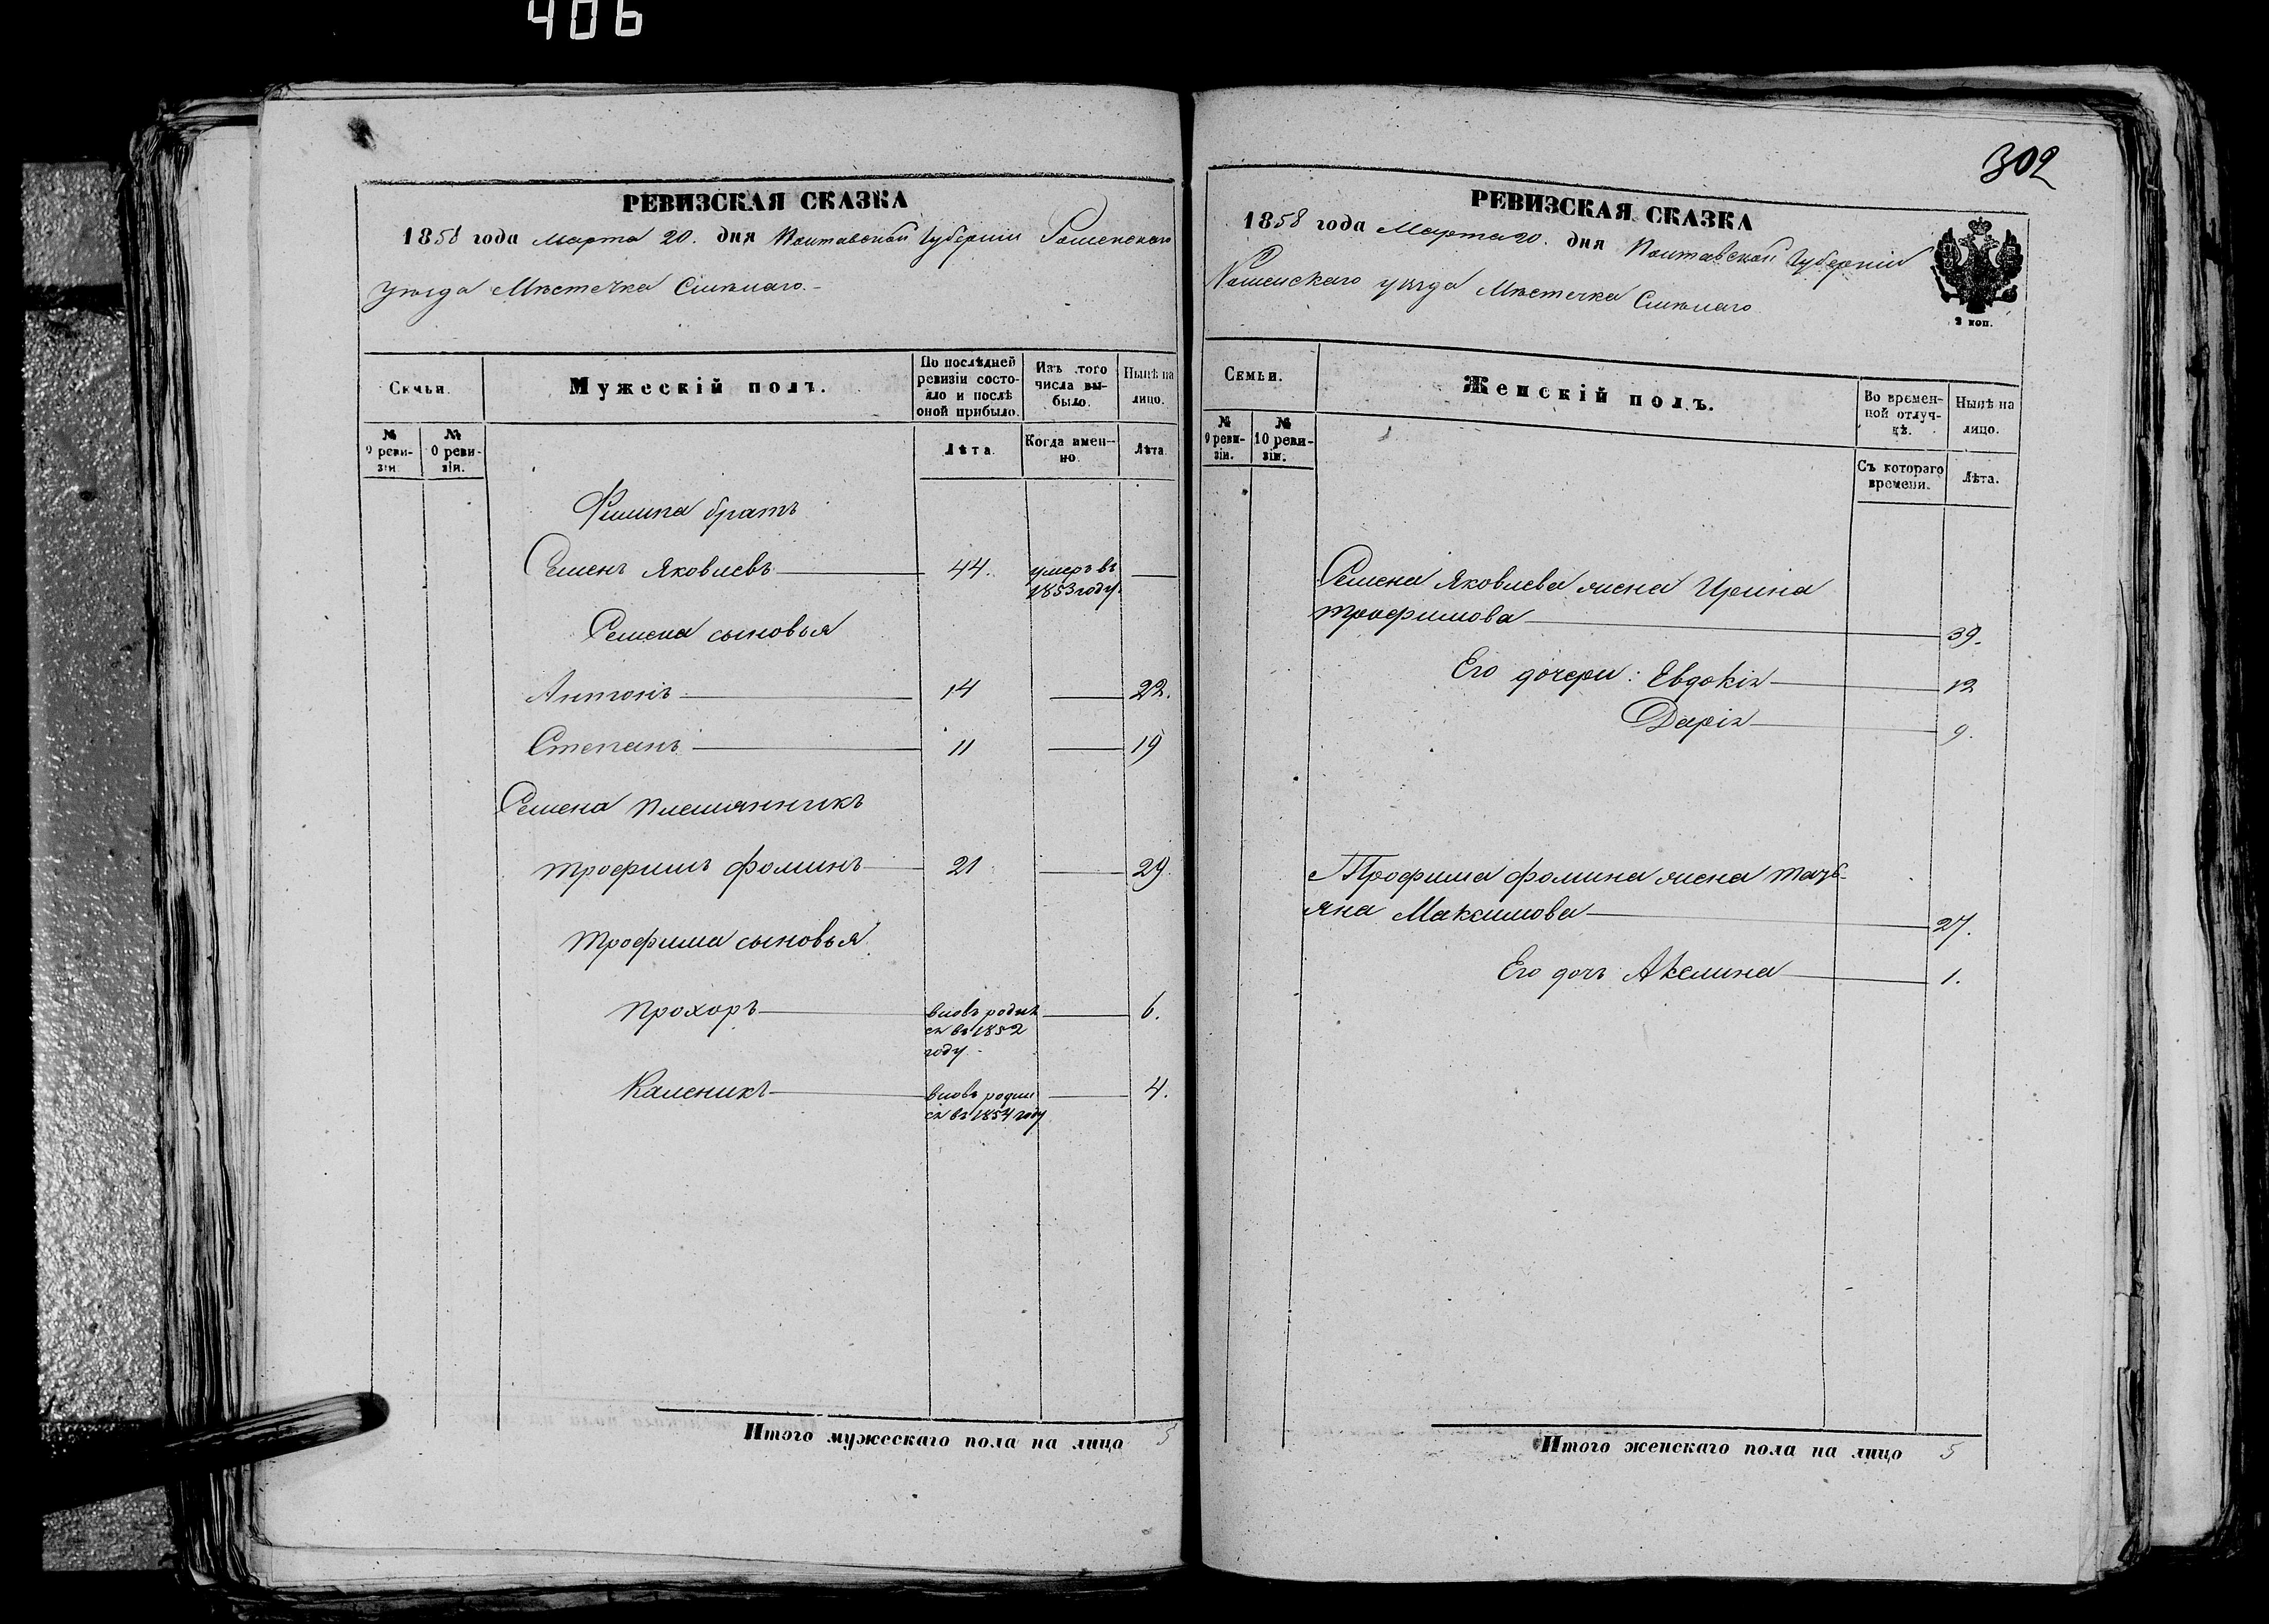 406
РЕВИЗСКАЯ СКАЗКА
1858 года Марта 20. дня Полтавской Губерніи Роменскаго
уѣзда Мѣстечка Смѣлаго.-
Семьи.
Мужескій полъ.
По послѣдней ревизіи состояло и послѣ оной прибыло.
Изъ того числа выбыло.
Нынѣ на лицо.
№ 9 ревизіи.
№ 0 ревизіи.
Лѣта.
Когда именно.
Лѣта
Филипа братъ
Семенъ Яковлевъ 44. умеръ въ 1853 году.
Семена сыновья
Антонъ 14 22.
Степанъ 11 19
Семена Племянникъ
Трофимъ Фоминъ 21 29.
Трофима сыновья
Прохоръ вновь родил ся въ 1852 году. 6.
Каленикъ вновь родил ся въ 1854 году 4.
Итого мужескаго пола на лицо 5
302
РЕВИЗСКАЯ СКАЗКА
1858 года Марта 20. дня Полтавской Губерніи
Роменскаго уѣзда Мѣстечка Смѣлаго
2 коп.
Семьи.
Женскій полъ.
Во временной отлучкѣ.
Нынѣ на лицо.
№ 9 ревизіи.
№ 10 ревизіи.
Съ котораго времени.
Лѣта.
Семена Яковлева жена Ирина
Трофимова 39.
Его дочери: Евдокія 12
Дарія 9.
Трофима Фомина жена Тать-
яна Максимова 27.
Его дочь Акелина 1.
Итого женскаго пола на лицо 5